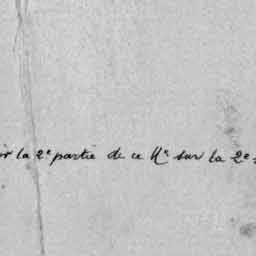 la 2e partie de ce Ne sur la 2e